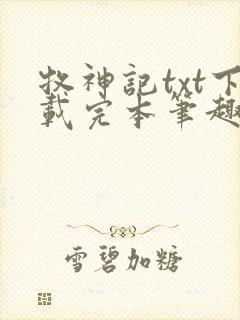 牧神記txt下
載完本筆趣
雪碧加糖